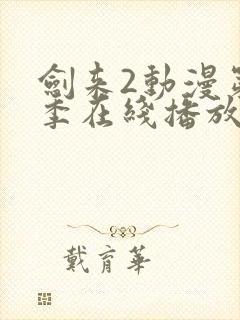 劍來2動漫第
季在綫播放
戴育華